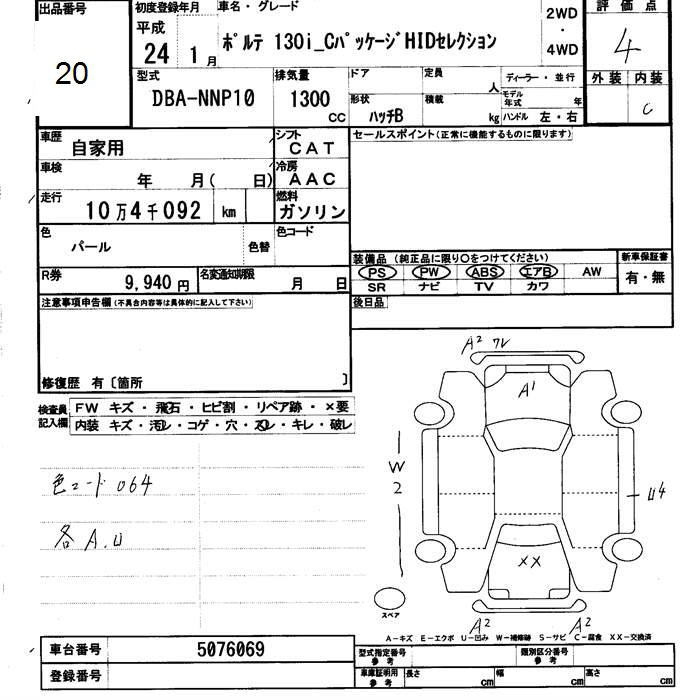 出品番号 初度登録年月 車名・グレード 2WD 評価点
20 平成 24 1月 ポルテ 130i_CパッケージHIDセレクション ・ 4WD 4
型式 排気量 ドア 定員 人 ディーラー・並行 外装 内装
DBA-NNP10 1300 CC 形状 ハッチB 積載 kg モデル年式 年 ハンドル 左・右 C
車歴 自家用 シフト CAT セールスポイント(正常に機能するものに限ります)
車検 年 月( 日) 冷房 AAC
走行 10万4千092 km 燃料 ガソリン
色 パール 色替 色コード 装備品 (純正品に限り○をつけてください) 新車保証書
PS PW ABS エアB AW 有・無
R券 9,940円 名変通知期限 月 日 SR ナビ TV カワ
注意事項申告欄(不具合内容等は具体的に記入して下さい) 後日品
修復歴 有〔箇所 〕
検査員 FW キズ・飛石・ヒビ割・リペア跡・×要
記入欄 内装 キズ・汚レ・コゲ・穴・スレ・キレ・破レ
A2 ワレ
A1
W2
U4
色コード 064
各 A.U
XX
スペア
A2 A2
A-キズ E-エクボ U-凹み W-補修跡 S-サビ C-腐食 XX-交換済
車台番号 5076069 型式指定番号 参考 類別区分番号 参考
登録番号 車庫証明用 参考 長さ cm 幅 cm 高さ cm